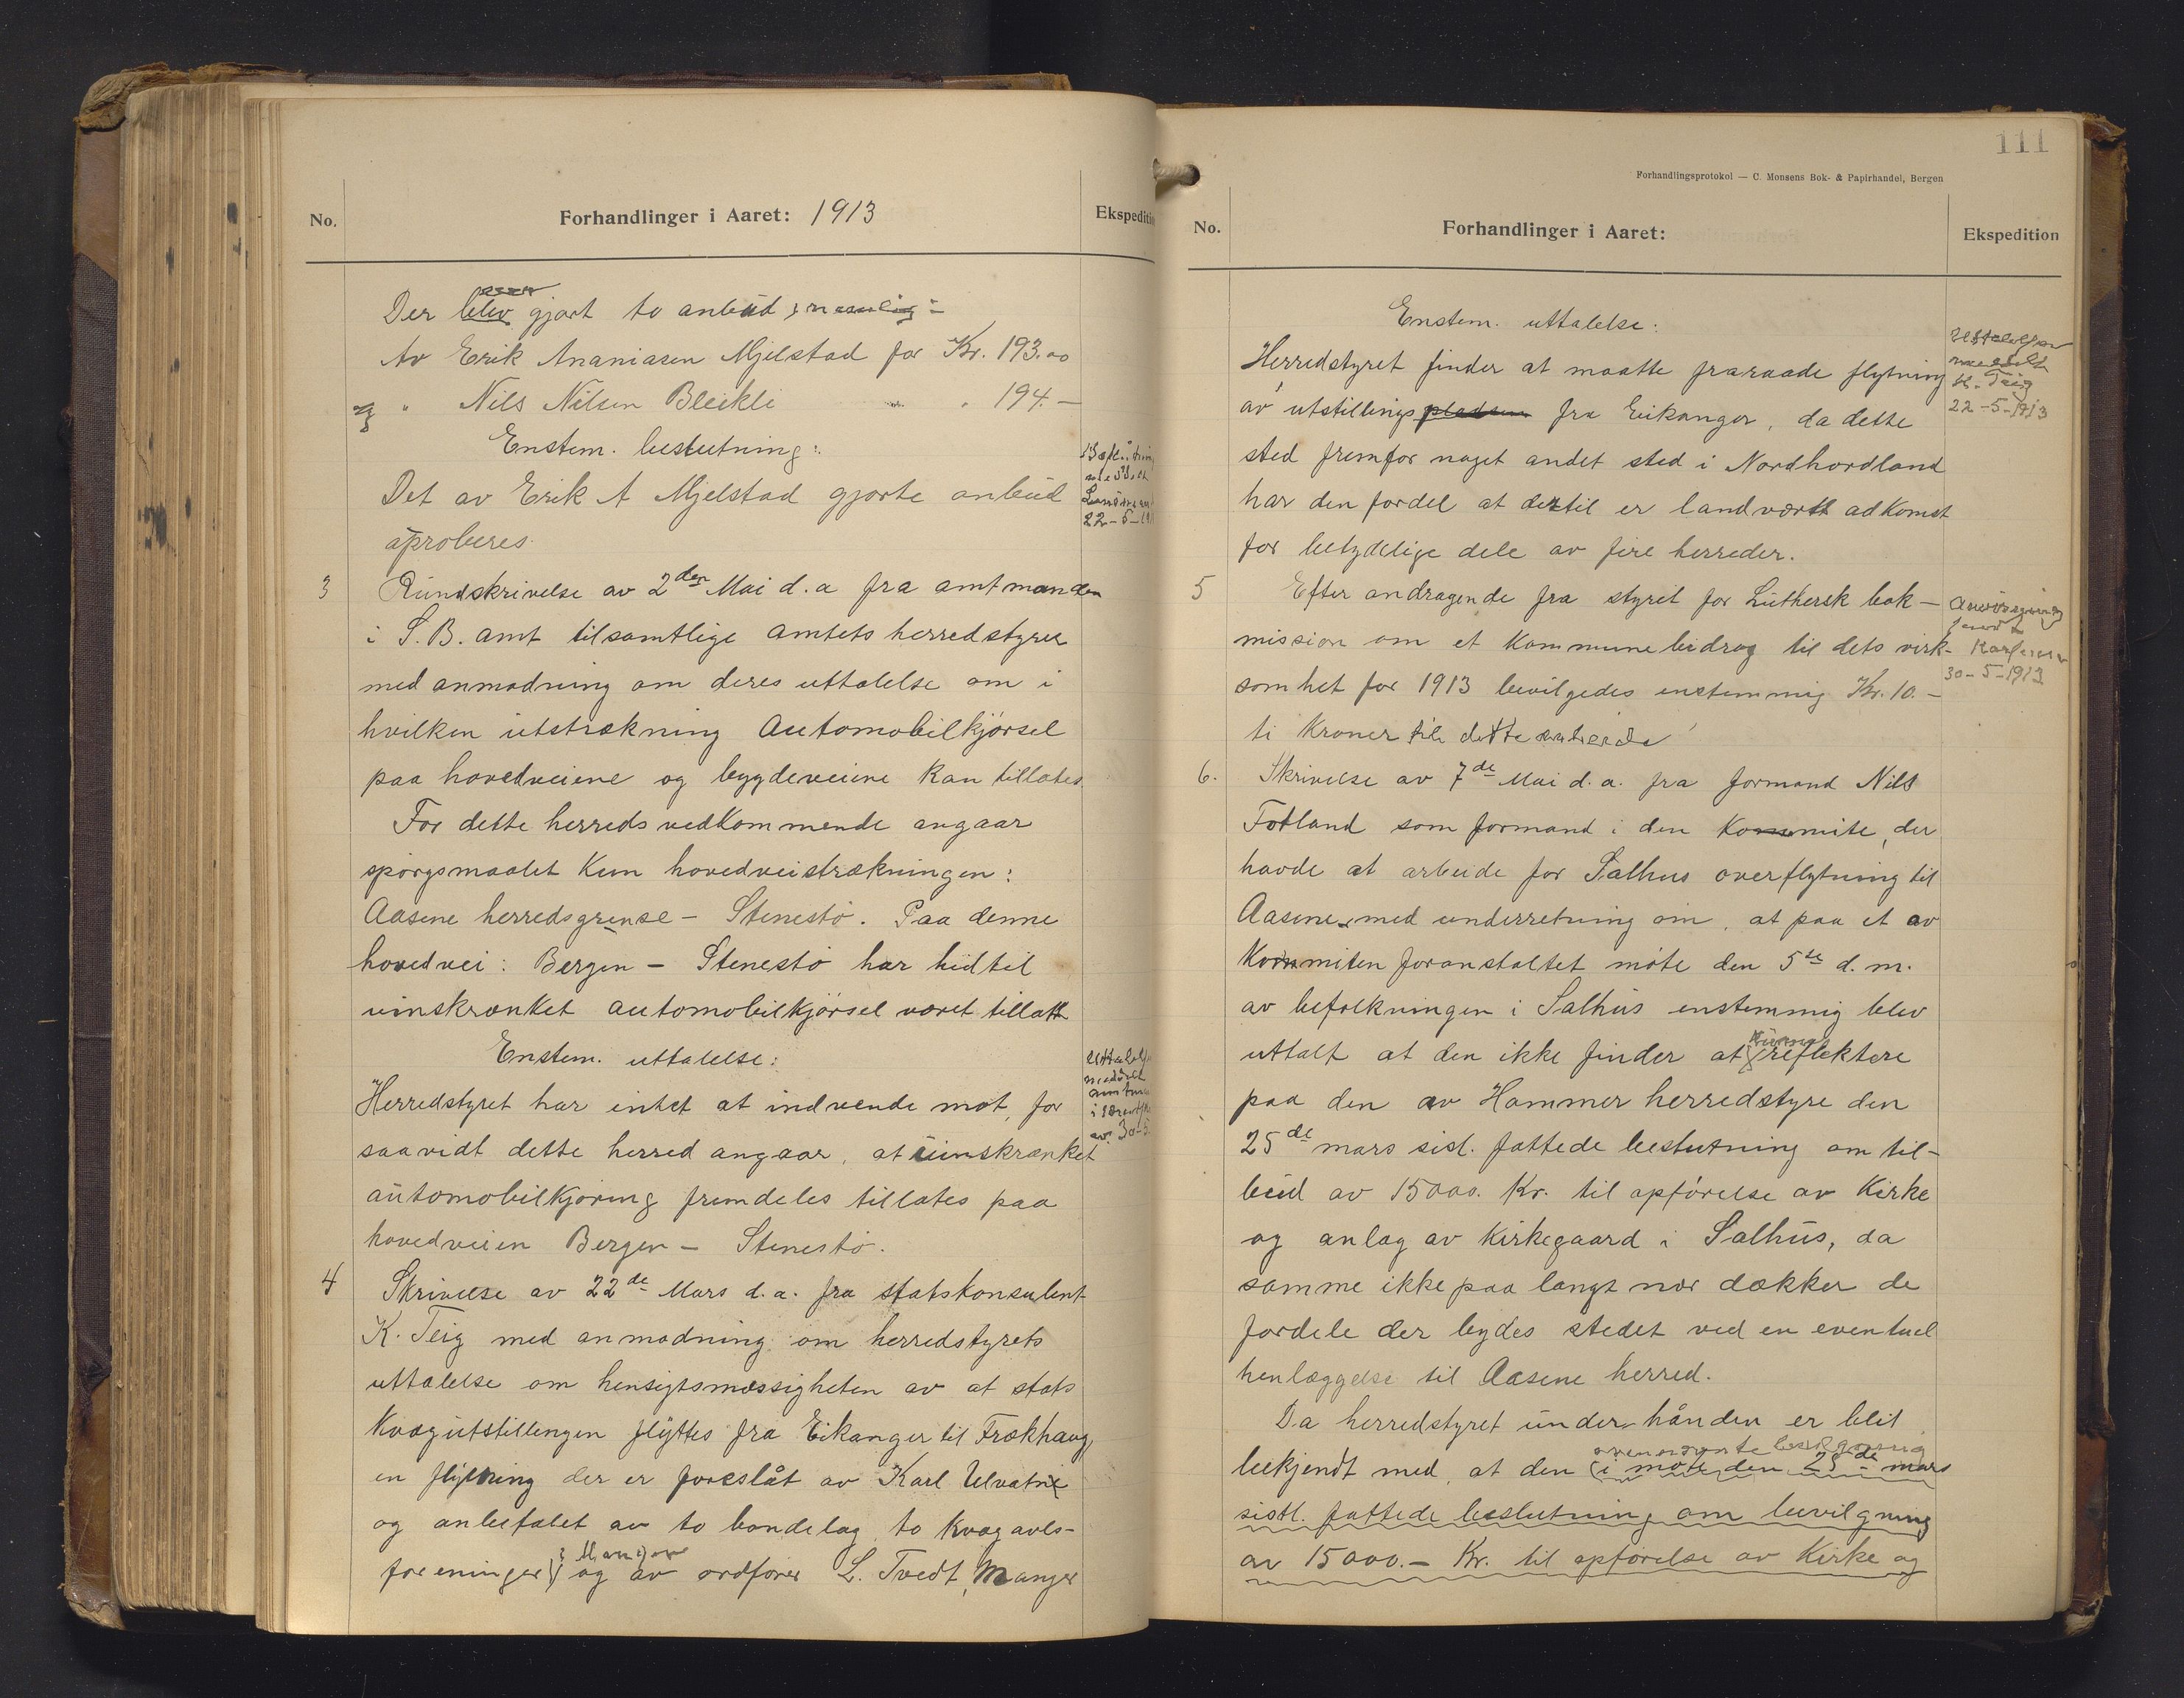 No.
Forhandlinger i Aaret: 1913
Ekspediti
Der blev gjort to anbud, nemlig:
Av Erik Ananiasen Mjelstad for Kr. 193.00
" Nils Nilsen Bleikli " 194.—
Enstem. beslutning:
Det av Erik A Mjelstad gjorte anbud
aproberes.
22-5-191
3 Rundskrivelse av 2den Mai d.a fra amtmanden
i S.B. amt til samtlige amtets herredstyrer
med anmodning om deres uttalelse om i
hvilken utstrækning Automobilkjørsel
paa hovedveiene og bygdeveiene kan tillates.
For dette herreds vedkommende angaar
spørgsmaalet kun hovedveistrækningen:
Aasene herredsgrense — Stenestø. Paa denne
hovedvei: Bergen — Stenestø har hidtil
uinskrænket automobilkjørsel været tillatt
Enstem. uttalelse:
Herredstyret har intet at indvende mot, for
saavidt dette herred angaar, at uinskrænket
automobilkjøring fremdeles tillates paa
hovedveien Bergen — Stenestø.
4 Skrivelse av 22de Mars d.a. fra statskonsulent
K. Teig med anmodning om herredstyrets
uttalelse om hensigtsmæssigheten av at stats
kvægutstillingen flyttes fra Eikanger til Frækhaug,
en flytning der er foreslåt av Karl Ulvatn
og anbefalet av to bondelag, to kvægavls-
foreninger og av ordfører L. Tvedt, Manger
111
Forhandlingsprotokol — C. Monsens Bok- & Papirhandel, Bergen
No.
Forhandlinger i Aaret:
Ekspedition
Enstem. uttalelse:
Herredstyret finder at maatte fraraade flytning
av utstillingspladsen fra Eikanger, da dette
sted fremfor noget andet sted i Nordhordland
har den fordel at dertil er landværts adkomst
for betydelige dele av fire herreder.
Uttalelsen
meddelt
K. Teig
22-5-1913
5 Efter andragende fra styret for Luthersk bok-
mission om et kommunebidrag til dets virk-
somhet for 1913 bevilgedes enstemmig Kr. 10.—
ti kroner til dette
anvisning
30-5-1913
6. Skrivelse av 7de Mai d.a. fra formand Nils
Fotland som formand i den Kommite, der
havde at arbeide for Salhus overflytning til
Aasene, med underretning om, at paa et av
Kommiten foranstaltet møte den 5te d.m.
av befolkningen i Salhus enstemmig blev
uttalt at den ikke finder at kunne reflektere
paa den av Hammer herredstyre den
25de mars sisl. fattede beslutning om til-
bud av 15000. Kr. til opførelse av Kirke
og anlæg av Kirkegaard i Salhus, da
samme ikke paa langt nær dækker de
fordele der bydes stedet ved en eventuel
henlæggelse til Aasene herred.
Da herredstyret under hånden er blit
ovennævnte
bekjendt med, at den i møte den 25de mars
sistl. fattede beslutning om bevilgning
av 15000.— Kr. til opførelse av Kirke og